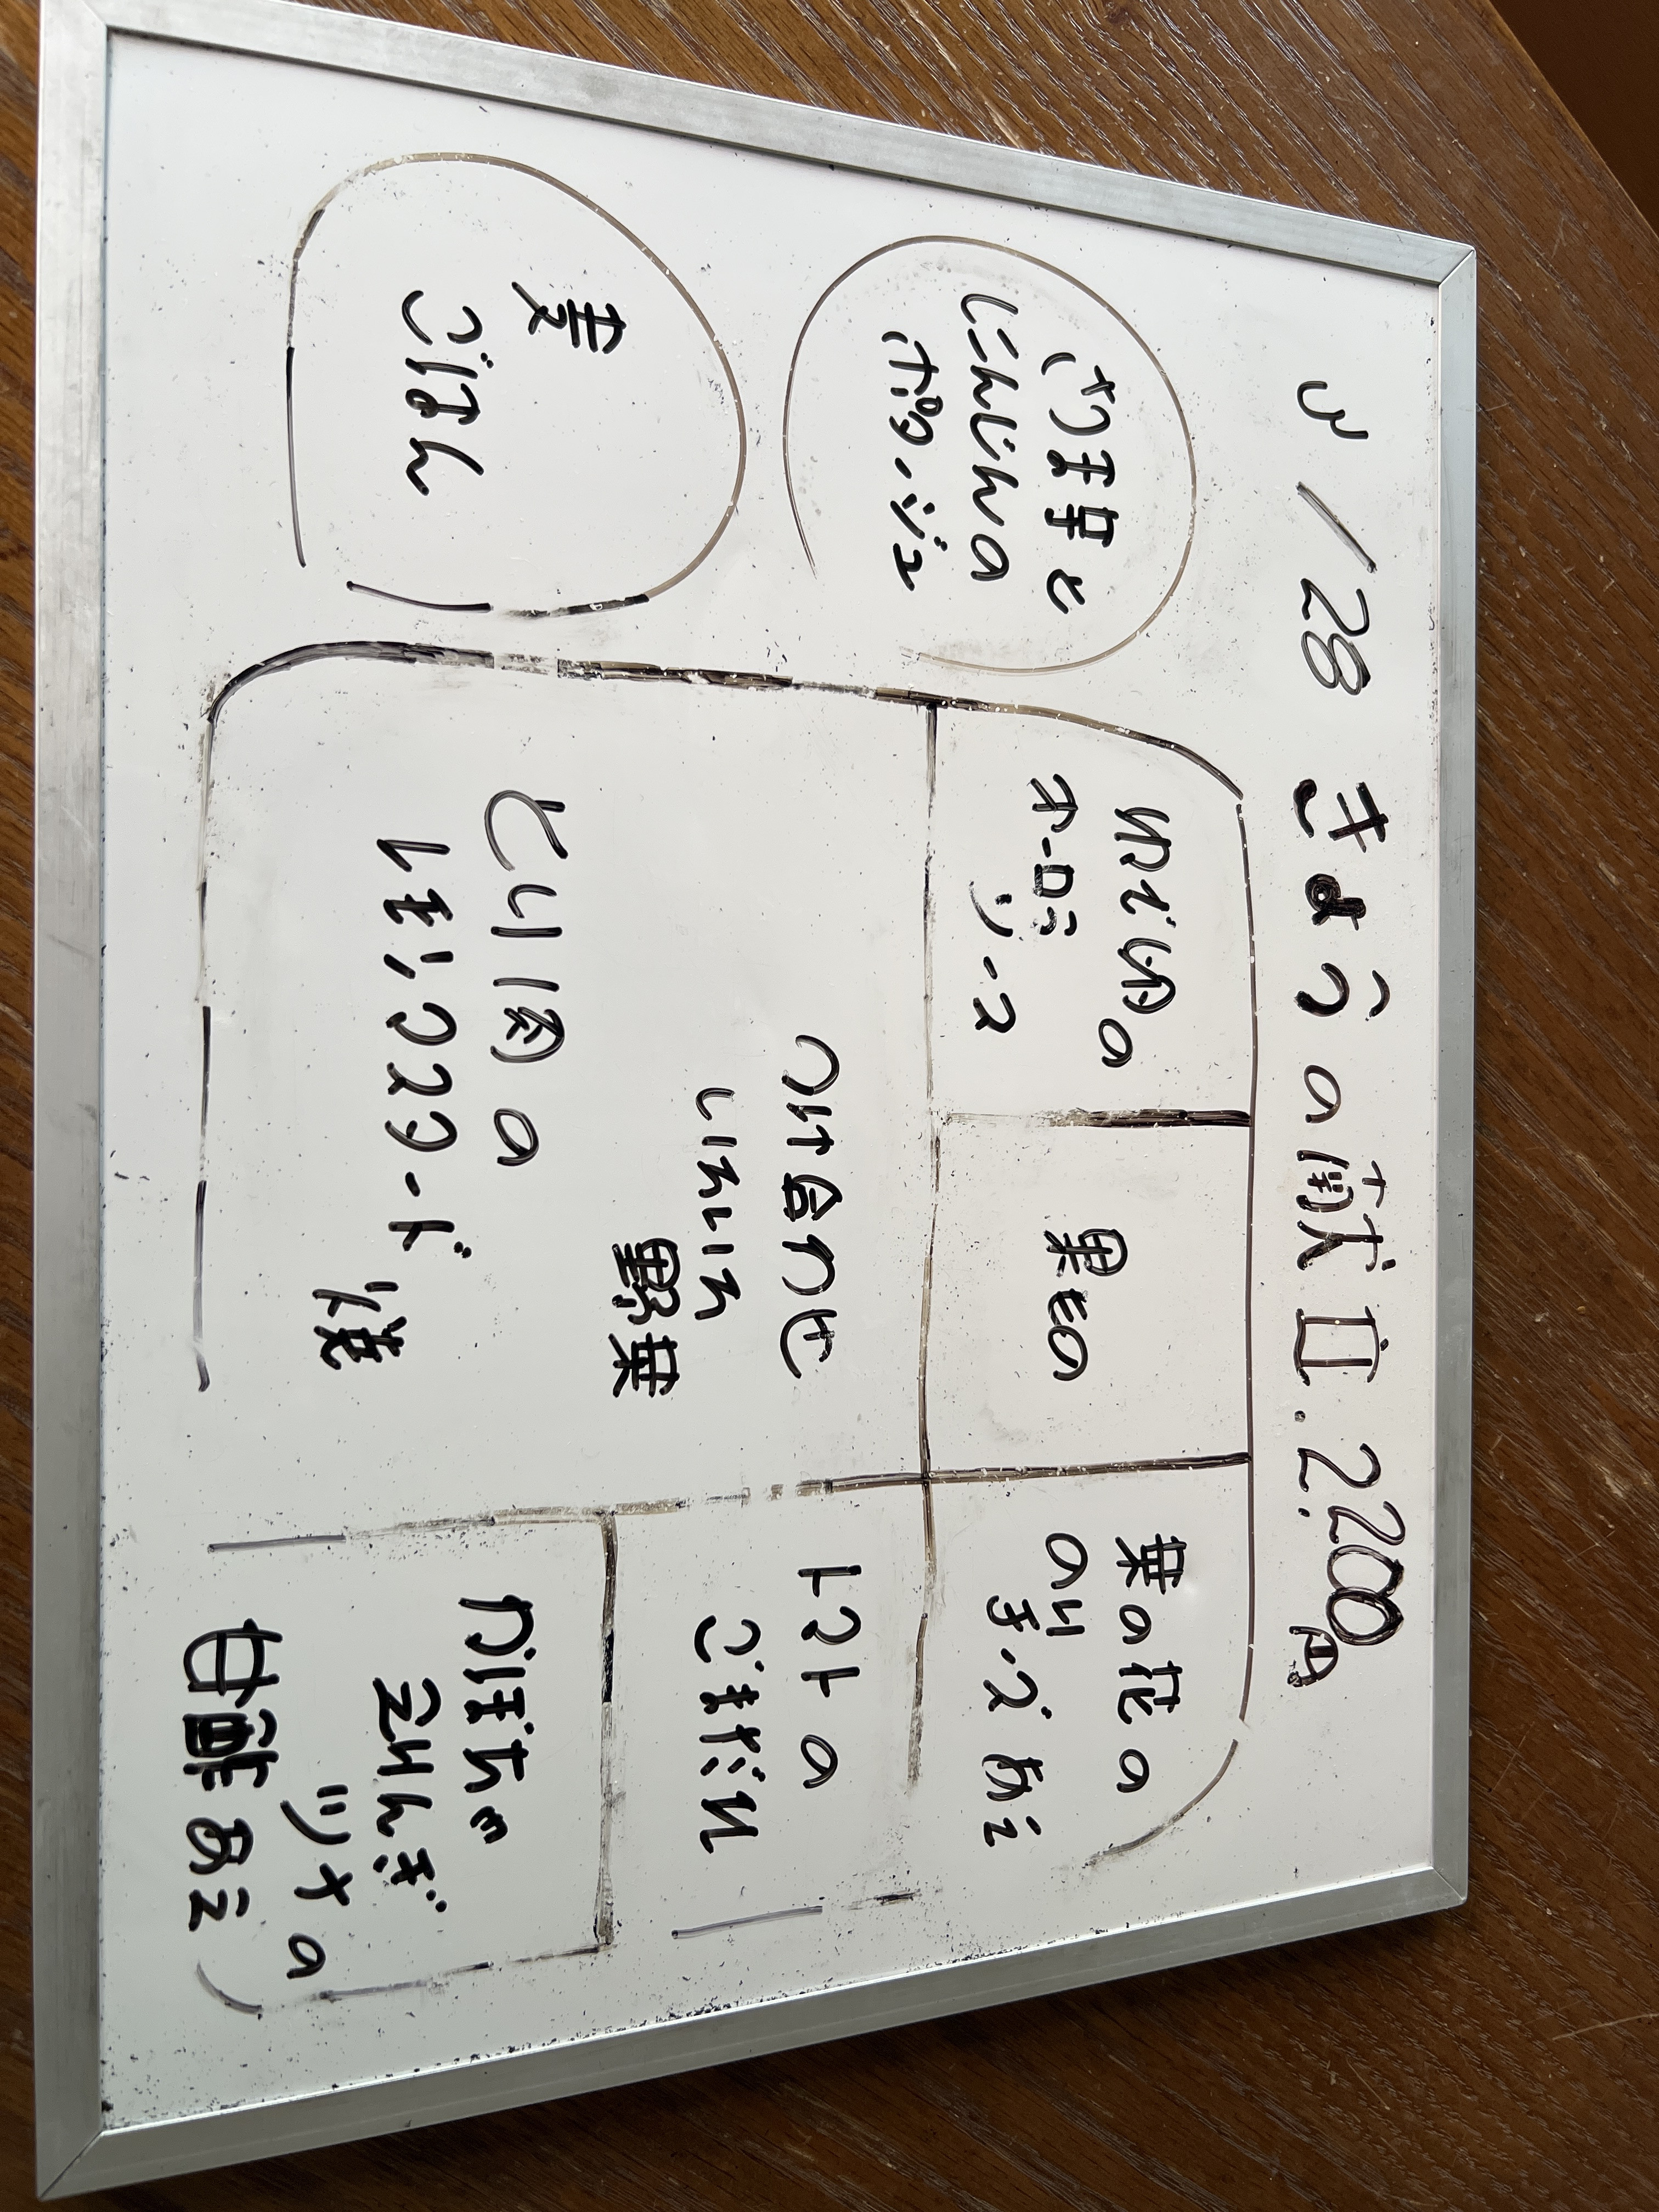 3/28 きょうの献立.2.200円
にんじんの
ポタージュ
麦
ごはん
ゆで卵の
オーロラ
ソース
果もの
菜の花の
のりチーズあえ
つけ合わせ
いろいろ
野菜
とり肉の
レモンマスタード焼
トマトの
ごまだれ
かぼちゃ
えりんぎ
ツナの
甘酢あえ